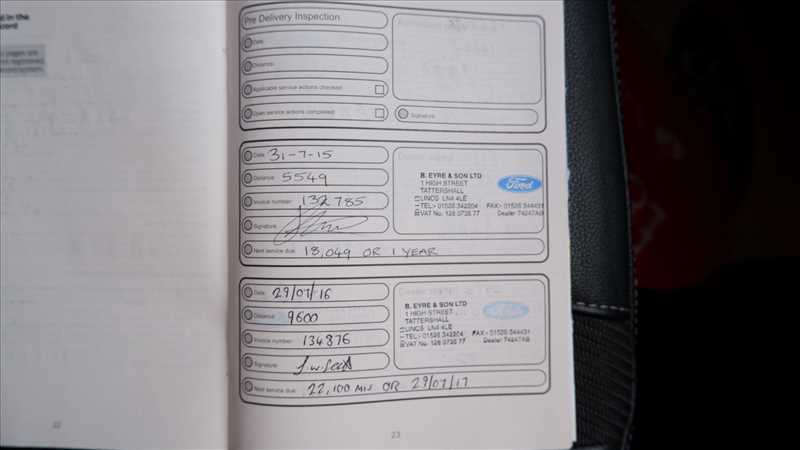 d in the
cord
pages are
registered
system.
22
Pre Delivery Inspection
Date:
Distance:
Applicable service actions checked
Open service actions completed
Signature:
Date: 31-7-15
Distance: 5549
Invoice number: 132785
Signature:
Next service due: 18,049 OR 1 YEAR
B. EYRE & SON LTD
1 HIGH STREET
TATTERSHALL
LINCS LN4 4LE
TEL:- 01526 342204 FAX:- 01526 344431
VAT No: 128 0738 77 Dealer 74247AB
Ford
Date: 29/07/16
Distance: 9600
Invoice number: 134876
Signature:
Next service due: 22,100 MLS OR 29/07/17
B. EYRE & SON LTD
1 HIGH STREET
TATTERSHALL
LINCS LN4 4LE
TEL:- 01526 342204 FAX:- 01526 344431
VAT No: 128 0738 77 Dealer 74247AB
23